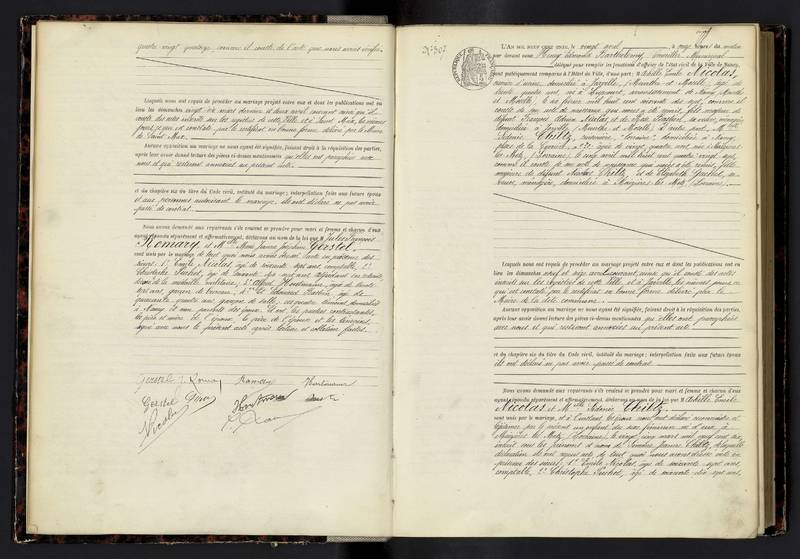 quatre vingt quatorze, comme il conste de l'acte que nous avons vérifié
Lesquels nous ont requis de procéder au mariage projeté entre eux et dont les publications ont eu
lieu les dimanches vingt six mars dernier et deux avril courant ainsi qu'il
conste des actes inscrits sur les registres de cette Ville et à Saint Max, les mêmes
jours, ce qui est constaté par le certificat en bonne forme délivré par le Maire
de Saint Max.
Aucune opposition au mariage ne nous ayant été signifiée, faisant droit à la réquisition des parties,
après leur avoir donné lecture des pièces ci-dessus mentionnées qu'elles ont paraphées avec
nous et qui resteront annexées au présent acte.
et du chapitre six du titre du Code civil, intitulé du mariage; interpellation faite aux futurs époux
et aux personnes autorisant le mariage, ils ont déclaré ne pas avoir
passé de contrat.
Nous avons demandé aux requérants s'ils veulent se prendre pour mari et femme et chacun d'eux
ayant répondu séparément et affirmativement, déclarons au nom de la loi que M. Jules François
Romary et Melle Marie Jeanne Joséphine Gerstel
sont unis par le mariage de tout quoi nous avons dressé acte en présence des
sieurs: 1° Emile Nicolas, âgé de soixante sept ans, comptable, 2°
Christophe Puchot, âgé de soixante six ans
de la médaille militaire, 3° Alfred Houtmann, âgé de trente
sept ans, garçon de bureau, 4°
quarante quatre ans, garçon de salle, ces quatre témoins domiciliés
à Nancy et non parents des époux. Et ont, les parties contractantes,
la mère de l'époux, le père de l'épouse et les témoins,
signé avec nous le présent acte après lecture et collation faites.
Gerstel J. Romary
Gerstel
Nicolas
N° 307
L'An mil neuf cent onze, le vingt avril, à onze heures du matin
par devant nous Henry Edmond Barthélemy, Conseiller Municipal
délégué pour remplir les fonctions d'officier de l'état civil de la Ville de Nancy,
ont publiquement comparu à l'Hôtel de Ville, d'une part: M. Achille Emile Nicolas,
ouvrier d'usine, domicilié à Jarville, (Meurthe et Moselle), âgé de
trente quatre ans, né à arrondissement de Nancy, Meurthe
et Moselle, le six février mil huit cent soixante dix sept, comme il
conste de son acte de naissance que nous a été remis, fils majeur de
défunt François Adrien Nicolas et de
domiciliée à Jarville (Meurthe et Moselle), d'autre part, Melle
Sidonie Thiltz, domiciliée à Nancy,
place de âgée de vingt quatre ans, née à Maizières
les Metz, (Lorraine), le cinq avril mil huit cent quatre vingt sept,
comme il conste de son acte de naissance qui nous a été remis, fille
majeure de défunt Nicolas Thiltz et de Elisabeth
ménagère, domiciliée à Maizières les Metz (Lorraine).
Lesquels nous ont requis de procéder au mariage projeté entre eux et dont les publications ont eu
lieu les dimanches neuf et seize avril courant, ainsi qu'il conste des actes
inscrits sur les registres de cette Ville, et à Jarville, les mêmes jours ce
qui est constaté par le certificat en bonne forme délivré par le
Maire de la dite commune.
Aucune opposition au mariage ne nous ayant été signifiée, faisant droit à la réquisition des parties,
après leur avoir donné lecture des pièces ci-dessus mentionnées qu'elles ont paraphées
avec nous et qui resteront annexées au présent acte
et du chapitre six du titre du Code civil, intitulé du mariage; interpellation faite aux futurs époux
ils ont déclaré ne pas avoir passé de contrat.
Nous avons demandé aux requérants s'ils veulent se prendre pour mari et femme et chacun d'eux
ayant répondu séparément et affirmativement, déclarons au nom de la loi que M. Achille Emile
Nicolas et Melle Sidonie Thiltz,
sont unis par le mariage, et à l'instant les époux nous ont déclaré reconnaître et
légitimer par le présent un enfant du sexe féminin né d'eux à
Maizières les Metz, (Lorraine), le vingt cinq mars mil neuf cent dix,
inscrit sous les prénoms et noms de Jeanne Thiltz, de laquelle
déclaration ils ont requis acte de tout quoi nous avons dressé acte en
présence des sieurs, 1° Emile Nicolas, âgé de soixante sept ans,
comptable, 2° Christophe Puchot, âgé de soixante six ans,